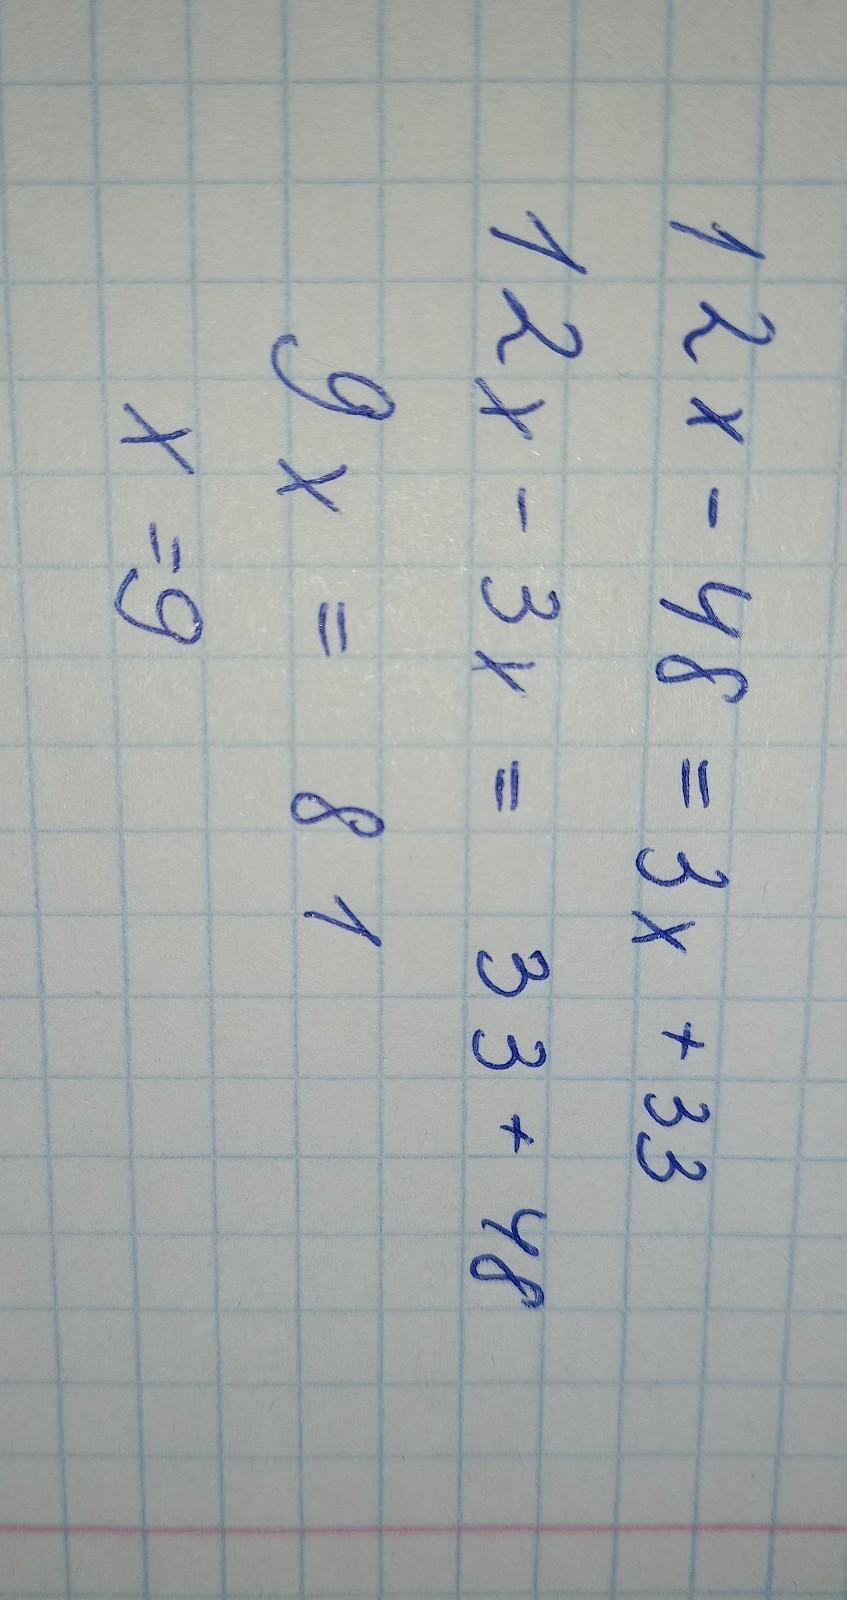 12x - 48 = 3x + 33
12x - 3x = 33 + 48
9x = 81
x = 9